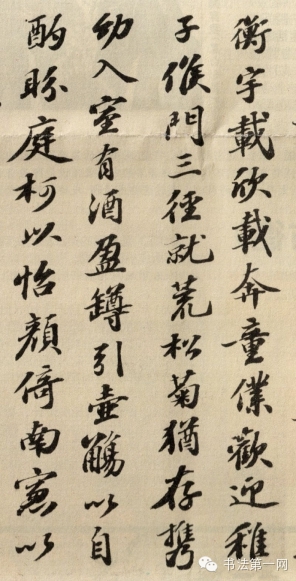 衡宇載欣載奔童僕歡迎稚
子候門三徑就荒松菊猶存携
幼入室有酒盈罇引壺觴以自
酌眄庭柯以怡顔倚南窓以
书法第一网